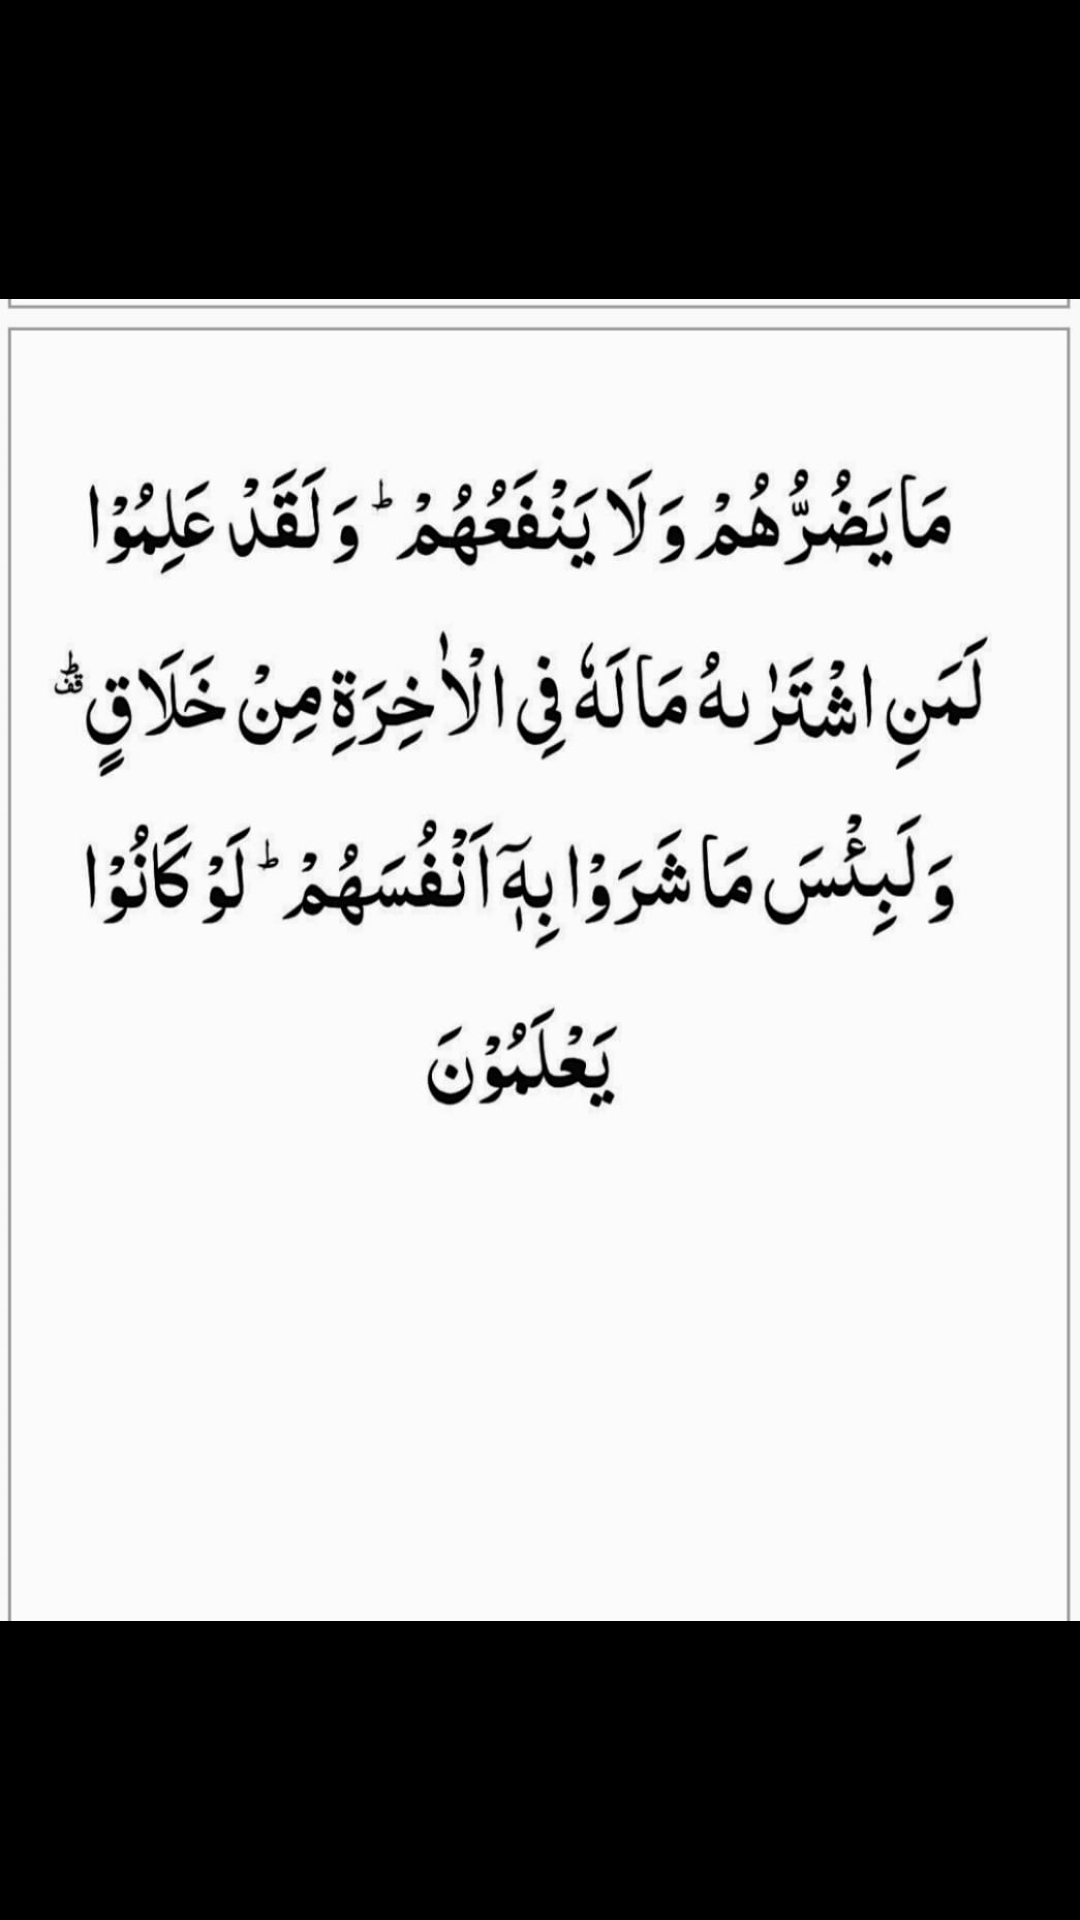 مَا يَضُرُّهُمْ وَلَا يَنْفَعُهُمْ ؕ وَلَقَدْ عَلِمُوْا
لَمَنِ اشْتَرٰىهُ مَا لَهٗ فِى الْاٰخِرَةِ مِنْ خَلَاقٍ ؕ قف
وَلَبِئْسَ مَا شَرَوْا بِهٖۤ اَنْفُسَهُمْ ؕ لَوْ كَانُوْا
يَعْلَمُوْنَ